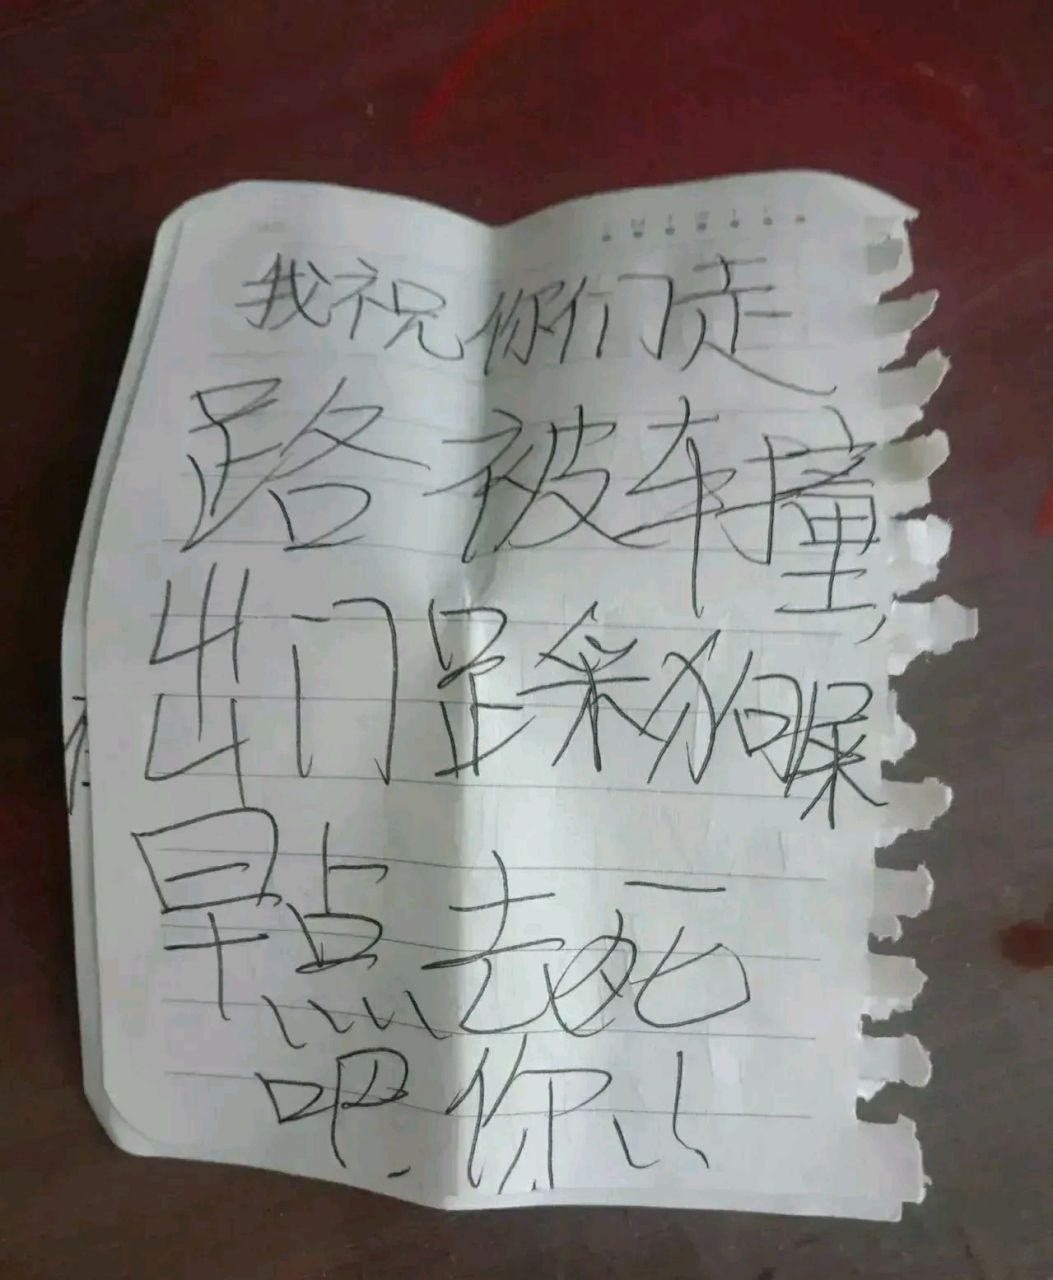 我祝你们走
路被车撞,
出门踩狗屎
早点去死
吧.你